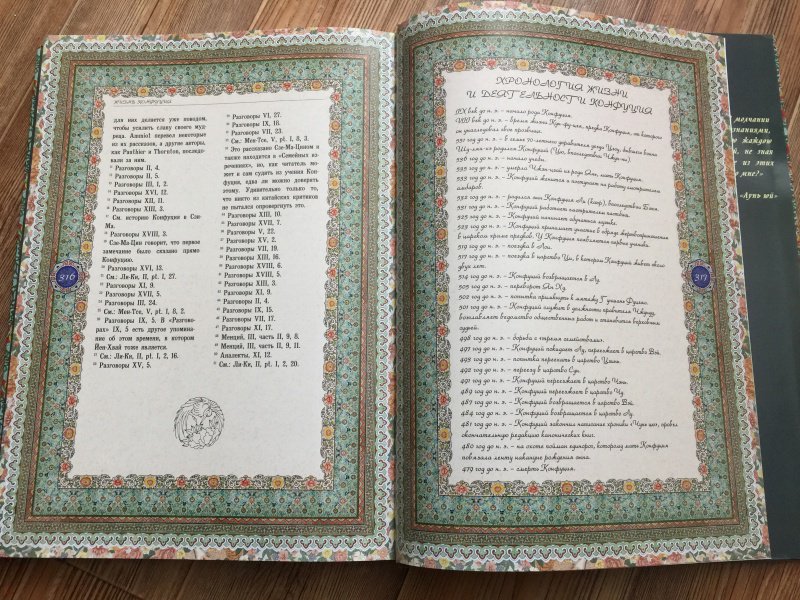 ЖИЗНЬ КОНФУЦИЯ
для них делается уже поводом,
чтобы усилить славу своего муд-
реца. Ammiot перевел некоторые
из их рассказов, а другие авторы,
как Panthier и Thornton, последо-
вали за ним.
Разговоры II, 4.
Разговоры II, 5.
Разговоры III, I, 2.
Разговоры XVI, 12.
Разговоры XII, II.
Разговоры XIII, 3.
См. историю Конфуция в Сзе-
Ма.
Разговоры XVIII, 3.
Сзе-Ма-Цин говорит, что первое
замечание было сказано прямо
Конфуцию.
Разговоры XVI, 13.
См.: Ли-Ки, II, pt. I, 27.
Разговоры XI, 9.
Разговоры XVII, 5.
Разговоры III, 24.
См.: Мен-Тсе, V, pt. I, 8, 3.
Разговоры IX, 5. В «Разгово-
рах» IX, 5 есть другое упомина-
ние об этом времени, в котором
Йен-Хвай тоже является.
См.: Ли-Ки, II, pt. I, 2, 16.
Разговоры XV, 5.
Разговоры VI, 27.
Разговоры IX, 16.
Разговоры VII, 23.
См.: Мен-Тсе, V, pt. I, 8, 3.
Это рассказано Сзе-Ма-Цином и
также находится а «Семейных из-
речениях», но, как читатель мо-
жет и сам судить из учения Кон-
фуция, едва ли можно доверять
этому. Удивительно только то,
что никто из китайских критиков
не пытался опровергнуть это.
Разговоры XIII, 10.
Разговоры XVII, 7.
Разговоры V, 22.
Разговоры XV, 2.
Разговоры VII, 19.
Разговоры XIII, 16.
Разговоры XVIII, 6.
Разговоры XVIII, 5.
Разговоры XIII, 3.
Разговоры XI, 9.
Разговоры II, 4.
Разговоры IX, 15.
Разговоры VII, 17.
Разговоры XI, 17.
Менций, III, часть II, 9, 8.
Менций, III, часть II, 9, 11.
Аналекты, XI, 12.
См.: Ли-Ки, II, pt. I, 2, 20.
316
ХРОНОЛОГИЯ ЖИЗНИ
И ДЕЯТЕЛЬНОСТИ КОНФУЦИЯ
IX век до н. э. – начало рода Конфуция.
VIII век до н. э. – время жизни Кон-фу-чжи, предка Конфуция, от которого
он унаследовал свое прозвище.
551 год до н. э. – в семье
родился Конфуций
530 год до н. э. – начало учебы.
533 год до н. э. – умерла Чжэн-чжай из рода Янь, мать Конфуция.
533 год до н. э. – Конфуций женится и поступает на работу смотрителем
амбаров.
532 год до н. э. – родился сын Конфуция Ли (карп),
Конфуций работает смотрителем пастбищ.
525 год до н. э. – Конфуций начинает обучение музыке.
523 год до н. э. – Конфуций принимает участие в обряде жертвоприношения
в царском храме предков. У Конфуция появляются первые ученики.
519 год до н. э. – поездка в
517 год до н. э. – поездка в царство Ци, в котором Конфуций живет около
двух лет.
514 год до н. э. – Конфуций возвращается в Лу.
505 год до н. э. – переворот Ян Ху.
502 год до н. э. – попытка примкнуть к мятежу Гуншан Фужао.
501 год до н. э. – Конфуций служит в должности правителя Чжунду,
возглавляет ведомство общественных работ и становится верховным
судьей.
498 год до н. э. – борьба с «тремя семействами».
497 год до н. э. – Конфуций покидает Лу, переезжает в царство Вэй.
493 год до н. э. – попытка переехать в царство Цзинь.
492 год до н. э. – переезд в царство Сун.
491 год до н. э. – Конфуций переезжает в царство Чэнь.
489 год до н. э. – Конфуций переезжает в царство Чу.
487 год до н. э. – Конфуций возвращается в царство Вэй.
484 год до н. э. – Конфуций возвращается в царство Лу.
481 год до н. э. – Конфуций закончил написание хроники «Чунь цю», провел
окончательную редакцию канонических книг.
480 год до н. э. – на охоте пойман единорог, которому мать Конфуция
повязала ленту накануне рождения сына.
479 год до н. э. – смерть Конфуция.
317
молчании
знаниями,
о каждою
й, не зная
из этих
мне?»
«Лунь юй»